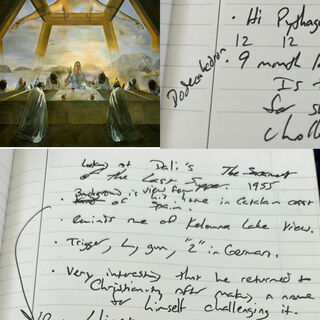 Hi Pythag
12 12
9 month
Is
for s
chall
Dodecahedron
Looking at Dali's The Sacrament
of the Last S 1955
Background is view from
of his home in Catalan coast
Reminds me of Kelowna Lake view.
Trigger, by gun, "2" in German.
Very interesting that he returned to
Christianity after making a name
for himself challenging it.